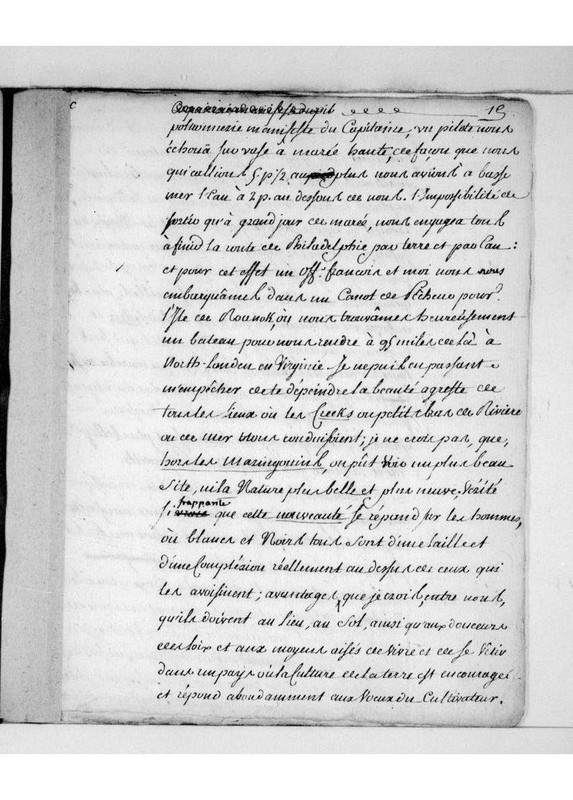 c 15
poltronnerie manifeste du Capitaine, un pilote nous
échoüa sur vase à marée haute, de façon que nous
qui callions 5. p. 1/2 au plus nous avions à basse
mer l'Eau à 2 p. au dessous de nous. l'Impossibilité de
sortir qu'à grand jour de marée, nous engagea tous
à finir la route de Philadelphie par terre et par Eau:
et pour cet effet un off. francois et moi nous
embarquâmes dans un Canot de Pêcheur pour
l'Isle de Roanok, où nous trouvâmes heureusement
un bateau pour nous rendre à 95 miles de là à
North-London en Virginie. Je ne puis en passant
m'empêcher de te dépeindre la beauté agreste de
tous les Lieux où les Creeks ou petits bras de Riviére
ou de mer nous conduisirent; je ne crois pas, que,
hors les Maringouins, on pût voir un plus beau
Site, ni la Nature plus belle et plus neuve. Vérité
si frappante que cette nouveauté se répand sur les hommes,
où blancs et Noirs tous sont d'une taille et
d'une Complexion réellement au dessus de ceux qui
les avoisinent; avantages, que je crois, entre nous,
qu'ils doivent au Lieu, au Sol, ainsi qu'aux douceurs
des loix et aux moyens aisés de vivre et de se vêtir
dans un pays où la Culture de la terre est encouragée
et répond abondamment aux Voeux du Cultivateur.